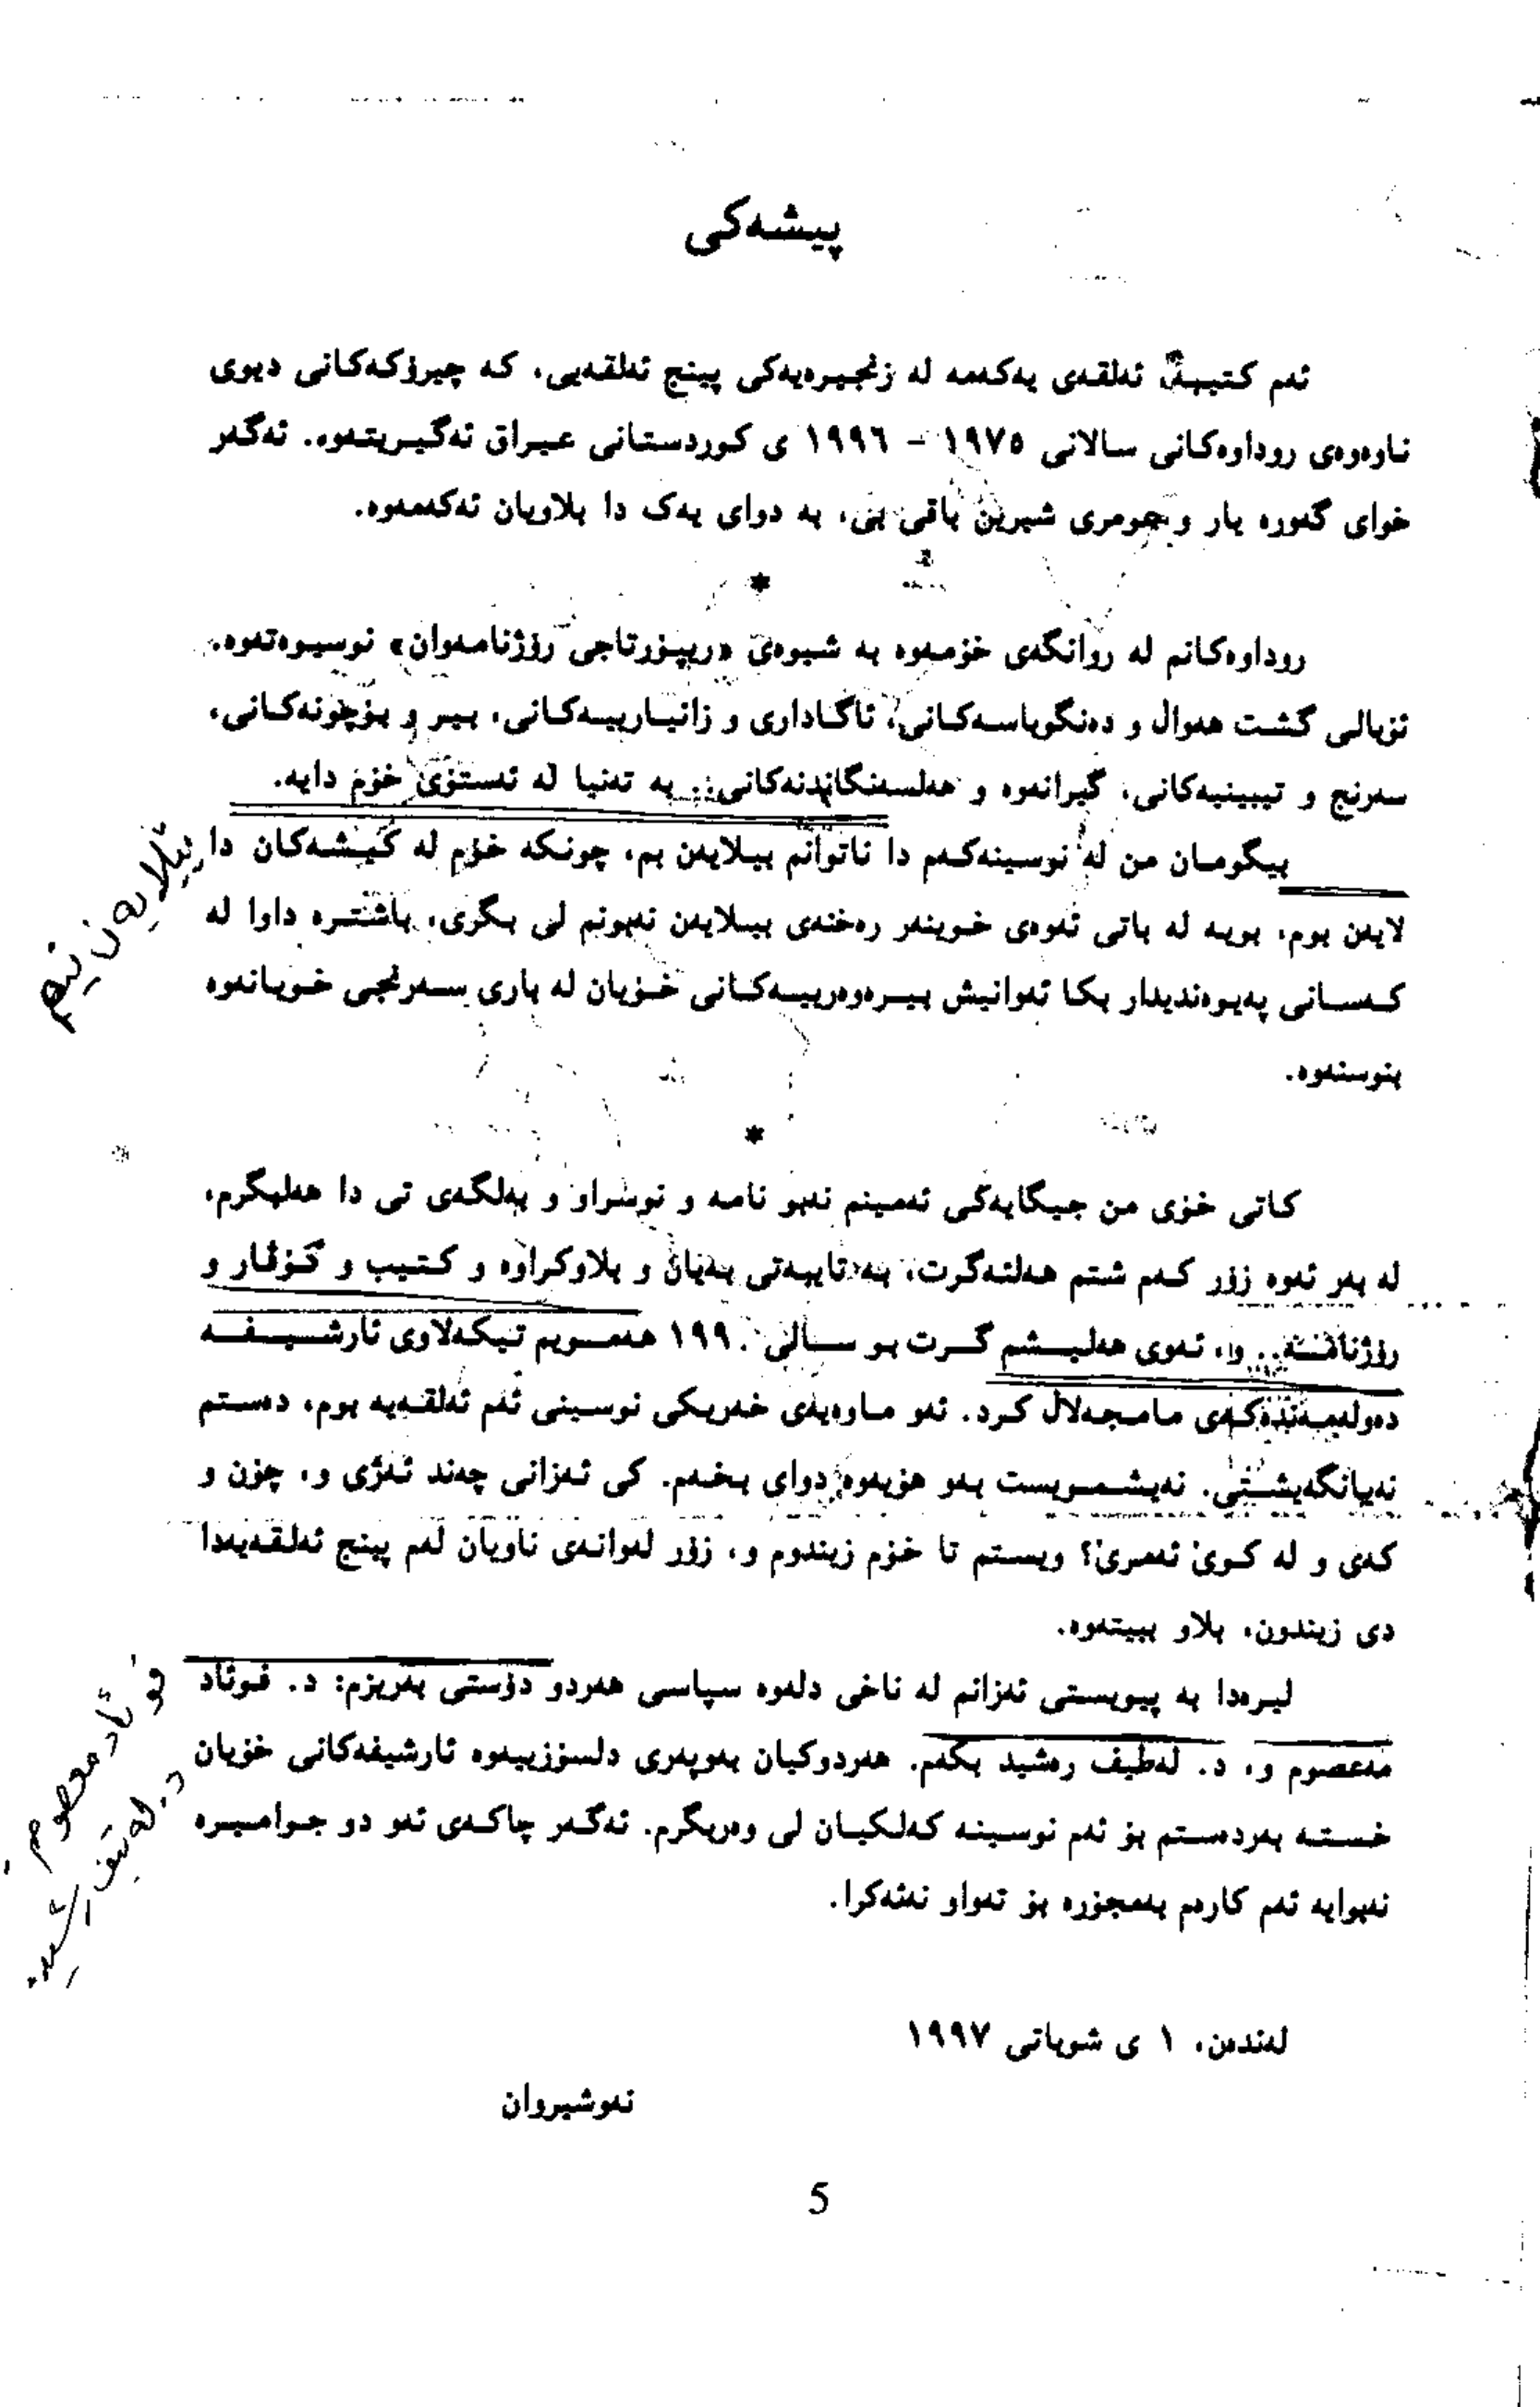 پیشەکی
ئەم کتیبە ئەلقەی یەکەمە لە زنجیرەیەکی پینج ئەلقەیی، کە چیرۆکەکانی دیوی
ناوەوەی روداوەکانی سالانی ١٩٧٥ - ١٩٩٦ ی کوردستانی عیراق ئەگیریتەوە. ئەگەر
خوای گەورە یار و عومری شیرین باقی بی، بە دوای یەک دا بلاویان ئەکەمەوە.
*
روداوەکانم لە روانگەی خۆمەوە بە شیوەی «ریپۆرتاجی رۆژنامەوان» نوسیوەتەوە.
ئۆبالی گشت هەوال و دەنگوباسەکانی، ئاگاداری و زانیارییەکانی، بیر و بۆچونەکانی،
سەرنج و تیبینیەکانی، گیرانەوە و هەلسەنگاندنەکانی.. بە تەنیا لە ئەستۆی خۆم دایە.
بیگومان من لە نوسینەکەم دا ناتوانم بیلایەن بم، چونکە خۆم لە کیشەکان دا
لایەن بوم، بویە لە باتی ئەوەی خوینەر رەخنەی بیلایەن نەبونم لی بگری، باشترە داوا لە
کەسانی پەیوەندیدار بکا ئەوانیش بیرەوەرییەکانی خۆیان لە باری سەرنجی خویانەوە
بنوسنەوە.
بێلایەن نیم
*
کاتی خۆی من جیگایەکی ئەمینم نەبو نامە و نوسراو و بەلگەی تی دا هەلبگرم،
لە بەر ئەوە زۆر کەم شتم هەلئەگرت، بە تایبەتی بەیان و بلاوکراوە و کتیب و گۆڤار و
رۆژنامە.. و، ئەوی هەلیشم گرت بو سالی ١٩٩٠ هەمویم تیکەلاوی ئارشیفە
دەولەمەندەکەی مامجەلال کرد. ئەو ماوەیەی خەریکی نوسینی ئەم ئەلقەیە بوم، دەستم
نەیانگەیشتی. نەیشمویست بەو هۆیەوە دوای بخەم. کی ئەزانی چەند ئەژی و، چۆن و
کەی و لە کوێ ئەمرێ؟ ویستم تا خۆم زیندوم و، زۆر لەوانەی ناویان لەم پینج ئەلقەیەدا
دی زیندون، بلاو ببیتەوە.
لیرەدا بە پیویستی ئەزانم لە ناخی دلەوە سپاسی هەردو دۆستی بەریزم: د. فوئاد
مەعصوم و، د. لەطیف رەشید بکەم. هەردوکیان بەوپەری دلسۆزییەوە ئارشیفەکانی خۆیان
خستە بەردەستم بۆ ئەم نوسینە کەلکیان لی وەربگرم. ئەگەر چاکەی ئەو دو جوامیرە
نەبوایە ئەم کارەم بەمجۆرە بۆ تەواو نەئەکرا.
فوئاد معصوم
د. لەتیف رشید
لەندەن، ١ ی شوباتی ١٩٩٧
نەوشیروان
5